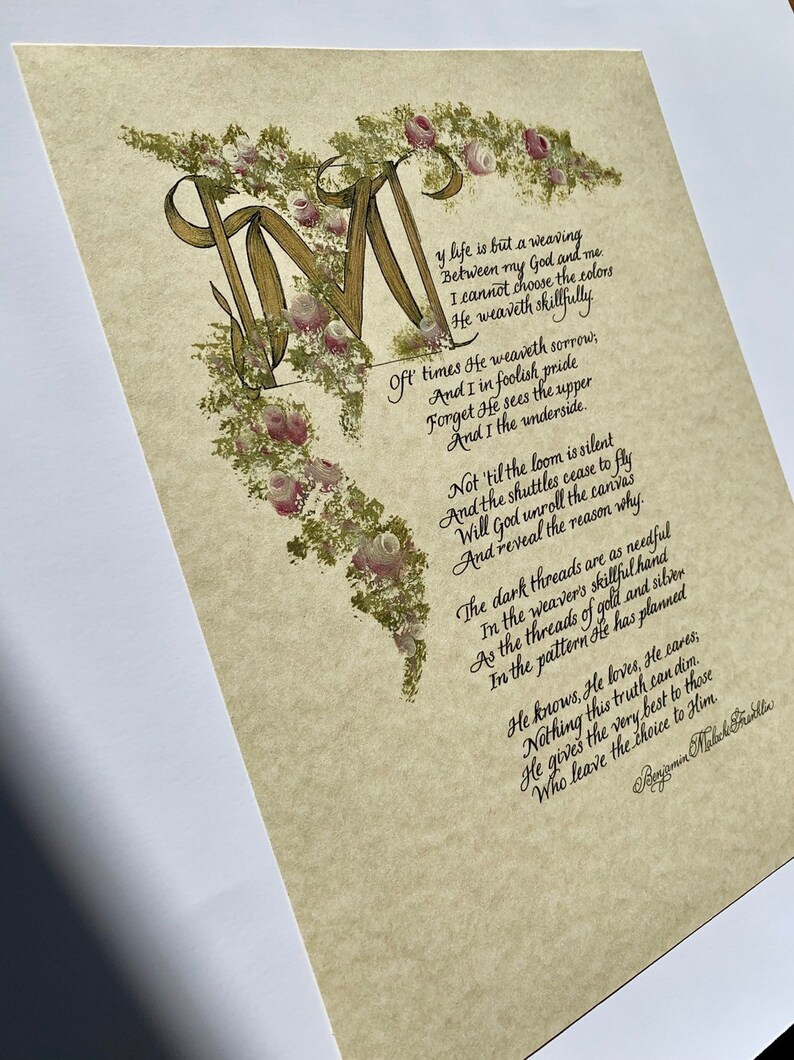 My life is but a weaving
Between my God and me.
I cannot choose the colors
He weaveth skillfully.
Oft' times He weaveth sorrow;
And I in foolish pride
Forget He sees the upper
And I the underside.
Not 'til the loom is silent
And the shuttles cease to fly
Will God unroll the canvas
And reveal the reason why.
The dark threads are as needful
In the weaver's skillful hand
As the threads of gold and silver
In the pattern He has planned
He knows, He loves, He cares;
Nothing this truth can dim.
He gives the very best to those
Who leave the choice to Him.
Benjamin Malachi Franklin